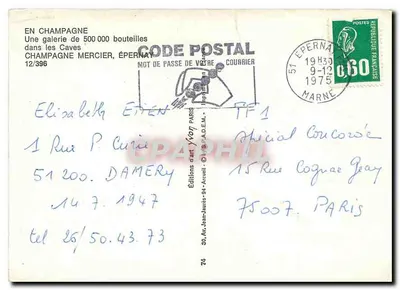 EN CHAMPAGNE
Une galerie de 500 000 bouteilles
dans les Caves
CHAMPAGNE MERCIER, ÉPERNAY
12/396
CODE POSTAL
MOT DE PASSE DE VOTRE COURRIER
51 EPERNAY
19H30
9-12
1975
MARNE
0,60
REPUBLIQUE FRANÇAISE
Elisabeth ETIEN
1 Rue P. Curie
51200. DAMERY
14.7.1947
tel 26/50.43.73
Editions d'art yvon PARIS
74 39, Av. Jean-Jaurès-94-Arcueil
TF1
Spécial Concorde
15 Rue Cognac Jay
75007. PARIS
delcampe